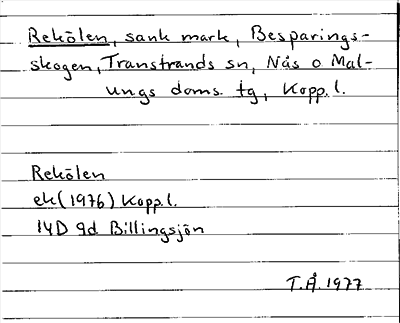 Rekölen, sank mark, Besparings-
skogen, Transtrands sn, Nås o Mal-
ungs doms. tg, Kopp.l.
Rekölen
ek(1976) Kopp.l.
14D 9d Billingsjön
T.Å. 1977